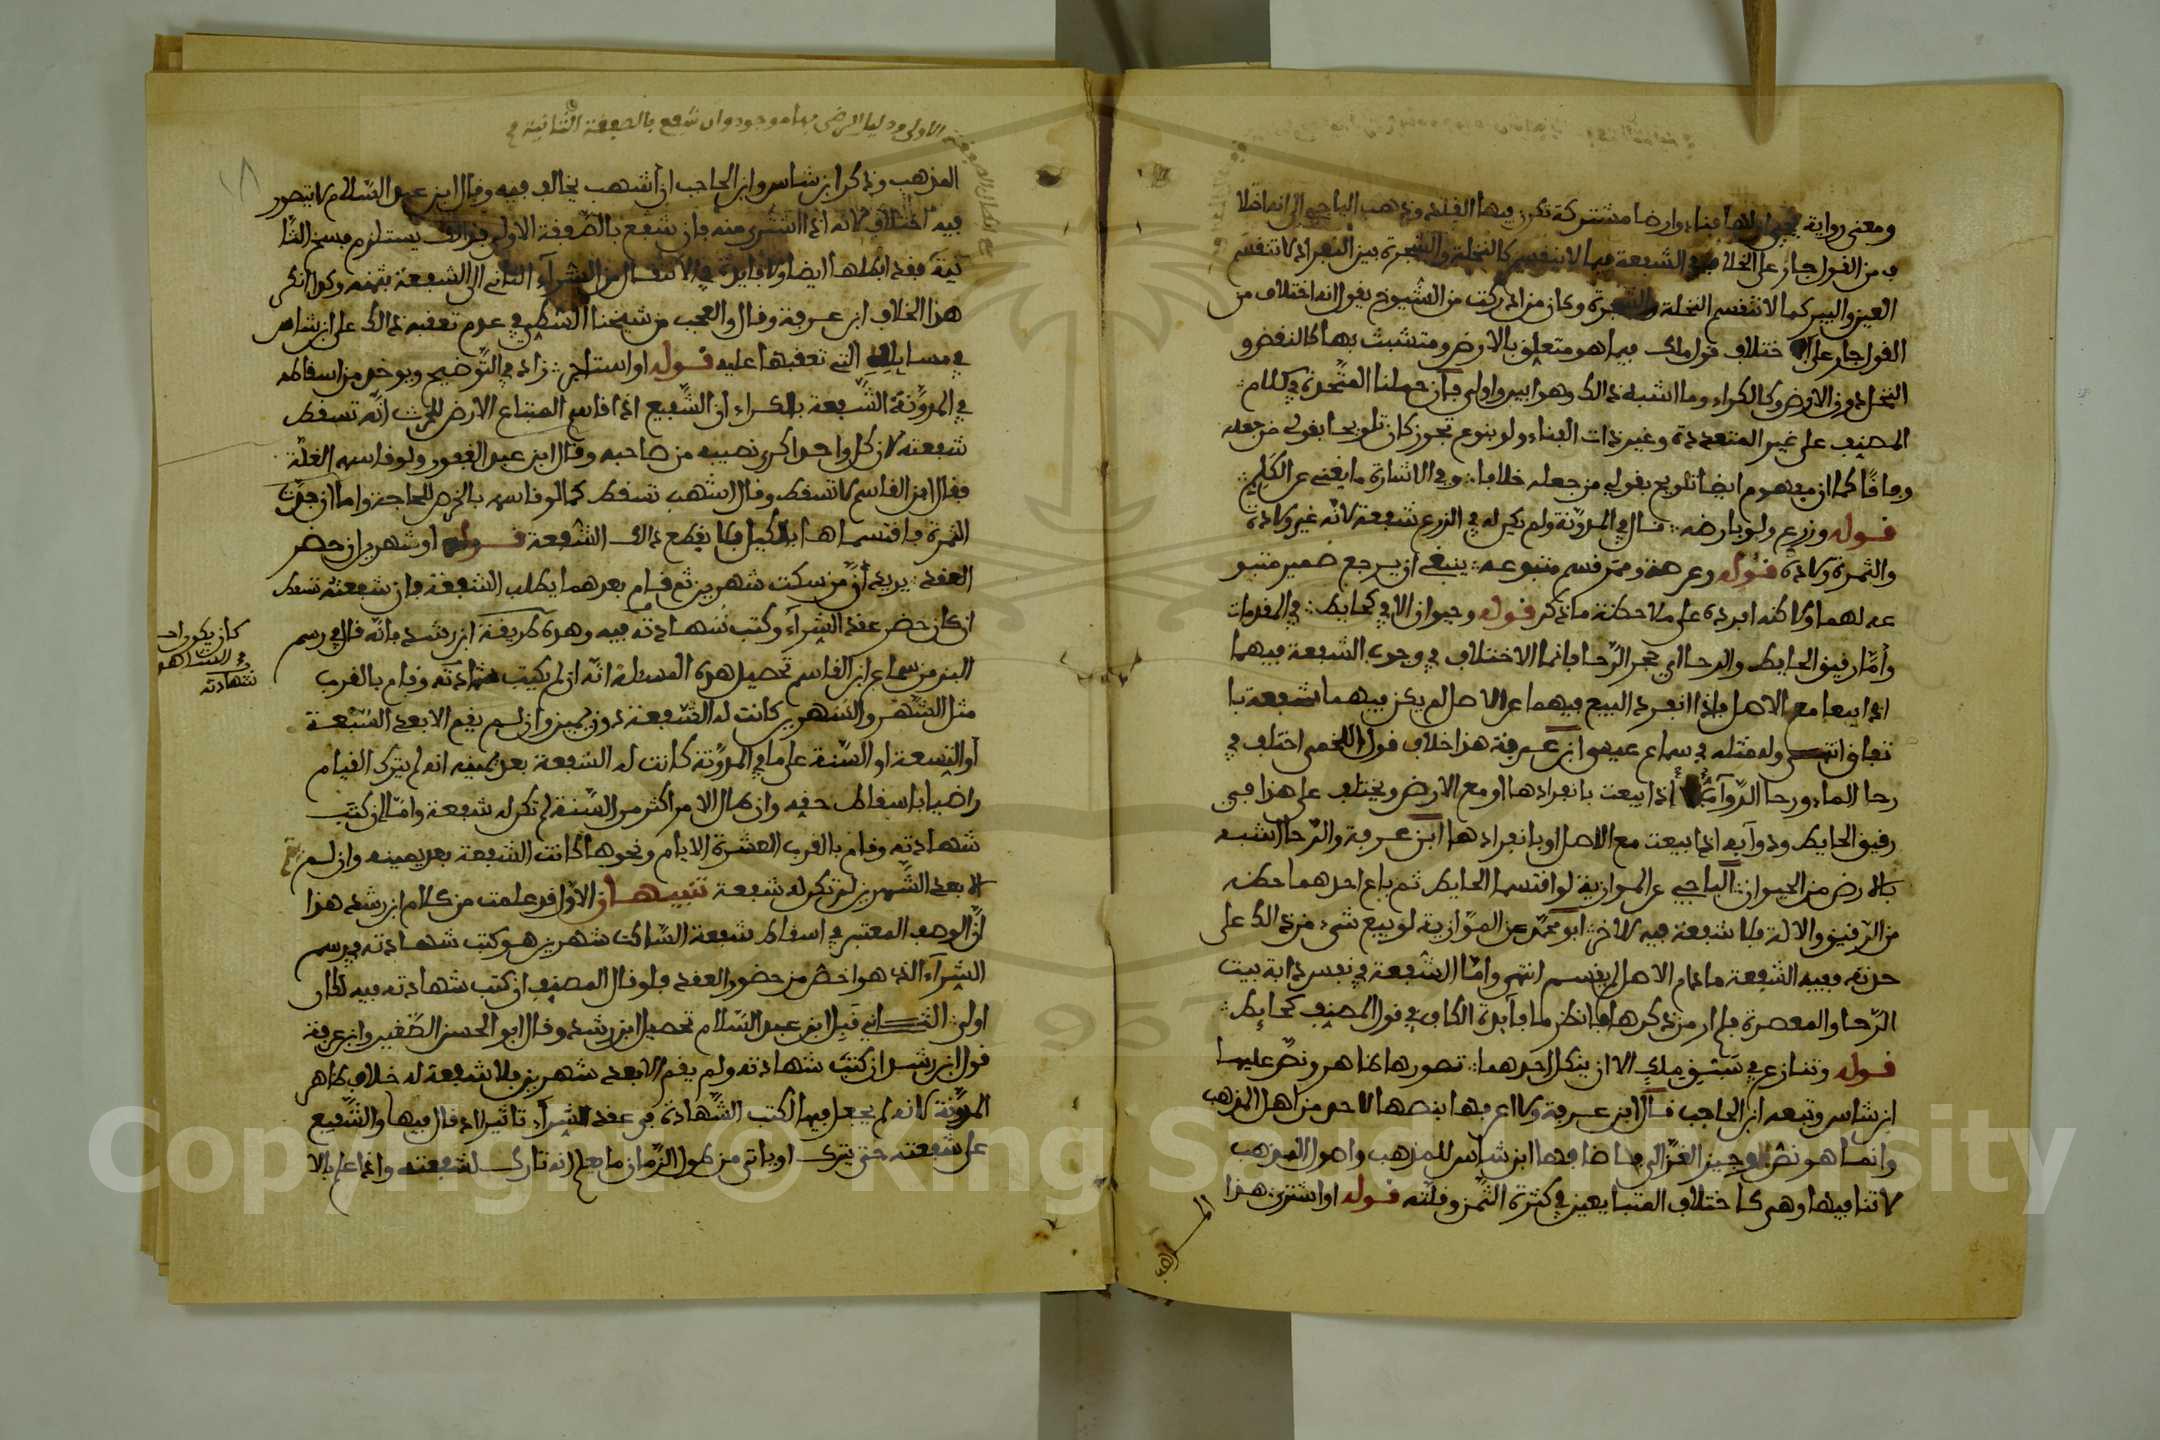 ومعنى رواية يحيى ان لها فناء وارضا مشتركة تكون فيها القلد وذهب الباجي الى انه اختلا
ف من القول جار على الخلاف في الشفعة فيما لا ينقسم كالنخلة والشجرة بين النفر اذ لا تنقسم
العين والبير كما لا تنقسم النخلة والشجرة وكان من ادركت من الشيوخ يقول انه اختلاف من
القول جار على اختلاف قول ملك فيما هو متعلق بالارض ومتشبث بها كالنقض و
النخل دون الارض وكالكراء وما اشبه ذالك وهو ابين واولى فان حملنا المتحدة في كلام
المصنف على غير المتعددة وغير ذات الفناء ولو بنوع تجوز كان تلويحا بقولي من جعله
وفاقا كما ان مفهوم ايضا تلويح بقولي من جعله خلافا وفي الاشارة ما يغني عن الكلم
قوله وزرع ولو بارضه قال في المدونة ولم يكن له في الزرع شفعة لانه غير ولادة
والثمرة ولادة قوله وعرصة وممر قسم متبوعه ينبغي ان يرجع ضمير متبو
عه لهما ولاكنه افرده على ملاحظة ما ذكر قوله وحيوان الا في كحايط في المقدمات
وأما رقيق الحايط والرحا اي حجر الرحا فانما الاختلاف في وجوب الشفعة فيهما
اذا بيعا مع الاصل فاذا انفرد البيع فيهما عن الاصل لم يكن فيهما شفعة با
تفاق انتهى وله مثله في سماع عيسى ابن عرفة هذا خلاف قول اللخمي اختلف في
رحا الماء ورحا الدوآب أذا بيعت بانفرادها او مع الارض ويختلف على هذا في
رقيق الحايط ودوآبه اذا بيعت مع الاصل او بانفرادها ابن عرفة والرحا اشبه
بالارض من الحيوان الباجي عن الموازية لو اقتسما الحايط ثم باع احدهما حظه
من الرقيق والالة فلا شفعة فيه للاخر ابو محمد عن الموازية لو بيع شيء من ذالك على
حدته ففيه الشفعة مادام الاصل لم يقسم انتهى وامّا الشفعة في نفس ذات بيت
الرّحا والمعصرة فلم ار من ذكرها فانظر ما فآيدة الكاف في قول المصنف كحايط
قوله وتنازع في سبق ملك الا ان ينكل احدهما تصورها ظاهر ونصّ عليها
ابن شاس وتبعه ابن الحاجب قال ابن عرفة ولا اعرفها بنصها لاحد من اهل المذهب
وانما هو نصّ وجيز الغزالي فاضافها ابن شاس للمذهب واصول المذهب
لا تنافيها وهي كاختلاف المتبايعين في كثرة الثمن وقلته قوله او اشترى هذا
المذهب
الاولى ودليل الرضى بها موجود وان شفع بالصفقة الثانية
المذهب وذكر ابن شاس وابن الحاجب ان أشهب يخالف فيه وقال ابن عبد السّلام لا يتصور
فيه اختلاف لانه اذا اشترى منه فان شفع بالصّفقة الاولى فذالك يستلزم فسخ الثا
نية فقد ابطلها ايضا ولا فايدة في الانتقال من الشرآء الثاني الى الشفعة بثمنه وكذا انكر
هذا الخلاف ابن عرفة وقال والعجب من شيخنا السّطي في عدم تعقبه ذالك على ابن شاس
في مسايله التي تعقبها عليه قوله او استاجر زاد في التّوضيح ويوخذ من اسقاطه
في المدوّنة الشّفعة بالكراء ان الشّفيع اذا قاسم المبتاع الارض للحرث انّه تسقط
شفعته لان كل واحد اكرى نصيبه من صاحبه وقال ابن عبد الغفور ولو قاسمه الغلّة
فقال ابن القاسم لا تسقط وقال اشهب تسقط كما لو قاسمه بالخرص للحاجة واما ان جذت
الثمرة فاقتسماها بالكيل فلا يقطع ذالك الشفعة قوله او شهرين ان حضر
العقد يريد أنّ من سكت شهرين ثم قام بعدهما يطلب الشفعة فان شفعته تسقط
ان كان حضر عقد الشرآء وكتب شهادته فيه وهذه طريقة ابن رشد فانّه قال في رسم
البز من سماع ابن القاسم تحصيل هذه المسئلة انّه ان لم يكتب شهادته وقام بالقرب
مثل الشّهر والشهرين كانت له الشّفعة دون يمين وان لم يقم الا بعد السّبعة
أو التسعة او السّنة على ما في المدوّنة كانت له الشفعة بعد يمينه انه لم يترك القيام
راضيا باسقاط حقه وان طال الامر اكثر من السّنة لم تكن له شفعة وامّا ان كتب
شهادته وقام بالقرب العشرة الايام ونحوها كانت الشفعة بعد يمينه وان لم
الا بعد الشّهرين لم تكن له شفعة تنبيهان الاوّل قد علمت من كلام ابن رشد هذا
انّ الوصف المعتبر في اسقاط شفعة السّاكت شهرين هو كتب شهادته في رسم
الشرآء الذي هو اخصّ من حضور العقد فلو قال المصنف ان كتب شهادته فيه لكان
اولى الثّاني قبل ابن عبد السّلام تحصيل ابن رشد وقال ابو الحسن الصّغير وابن عرفة
قول ابن رشد ان كتب شهادته ولم يقم الا بعد شهرين فلا شفعة له خلاف ظاهر
المدوّنة لانه لم يجعل فيها لكتب الشّهادة في عقد الشرآء تاثيرا اذ قال فيها والشّفيع
على شفعته حتى يترك او ياتي من طول الزّمان ما يعلم انه تارك لشفعته واذا علم بالا
كان يكون احد
الشاهد
شهادته